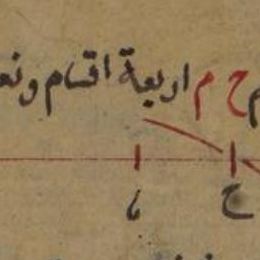 م ح م اربعة اقسام ونعـ
ح